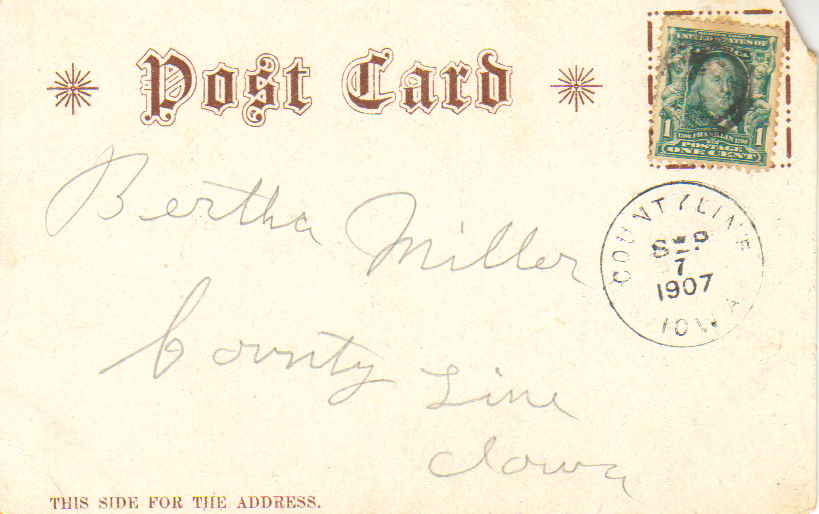 Post Card
UNITED STATES OF
1 FRANKLIN 1
POSTAGE
ONE CENT
COUNTY LINE
SEP
7
1907
IOWA
Bertha Miller
County Line
Iowa
THIS SIDE FOR THE ADDRESS.